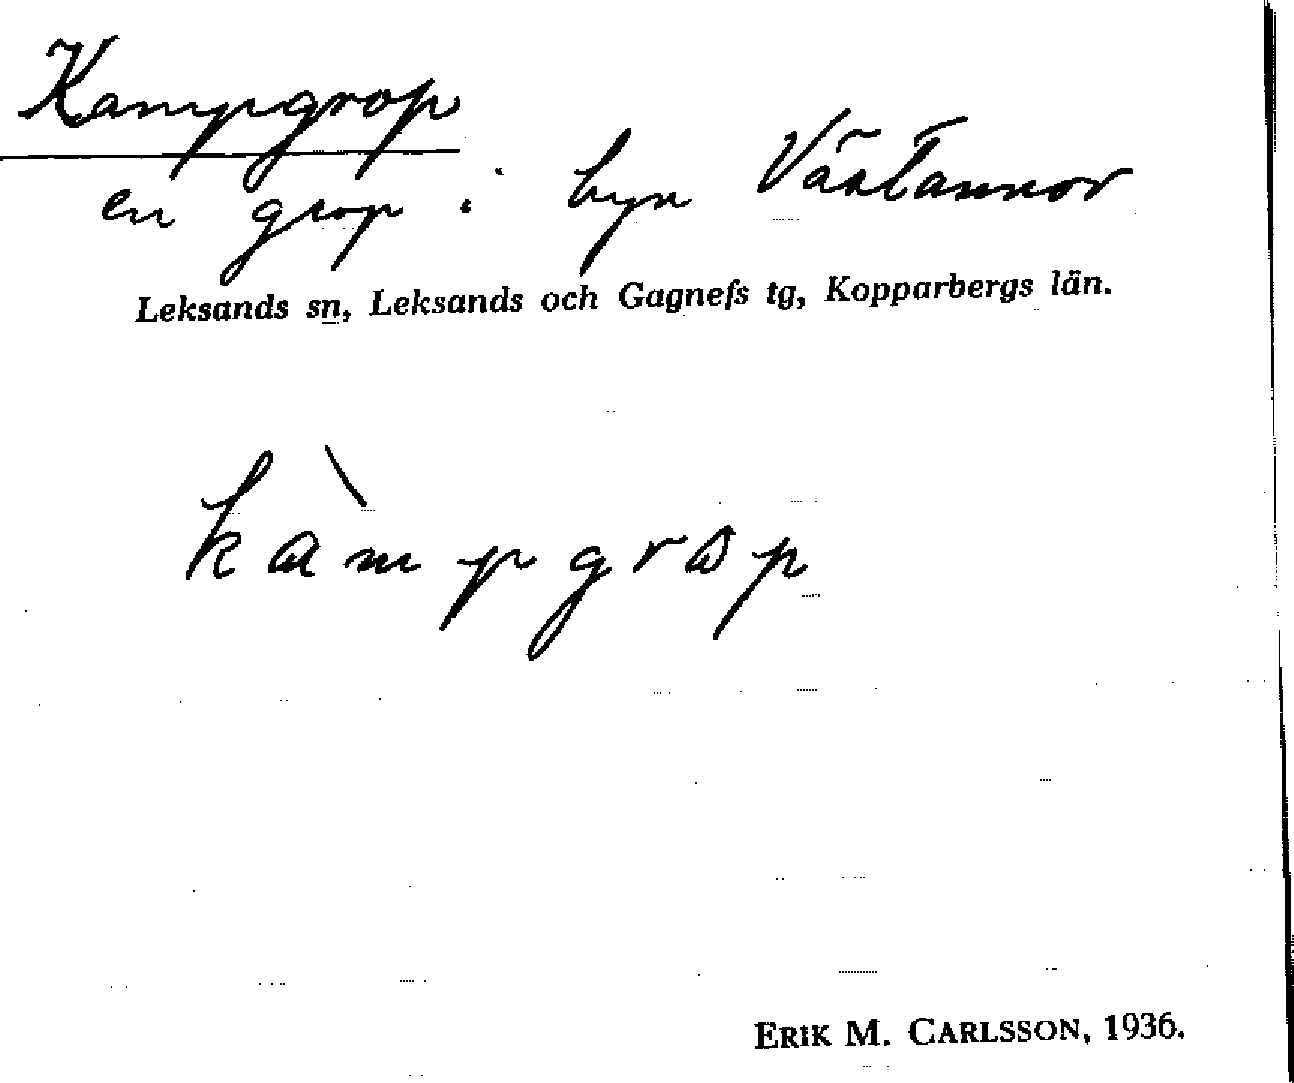 Kampgrop
en grop i byn Västannor
Leksands sn, Leksands och Gagnefs tg, Kopparbergs län.
kàmpgrop
ERIK M. CARLSSON, 1936.